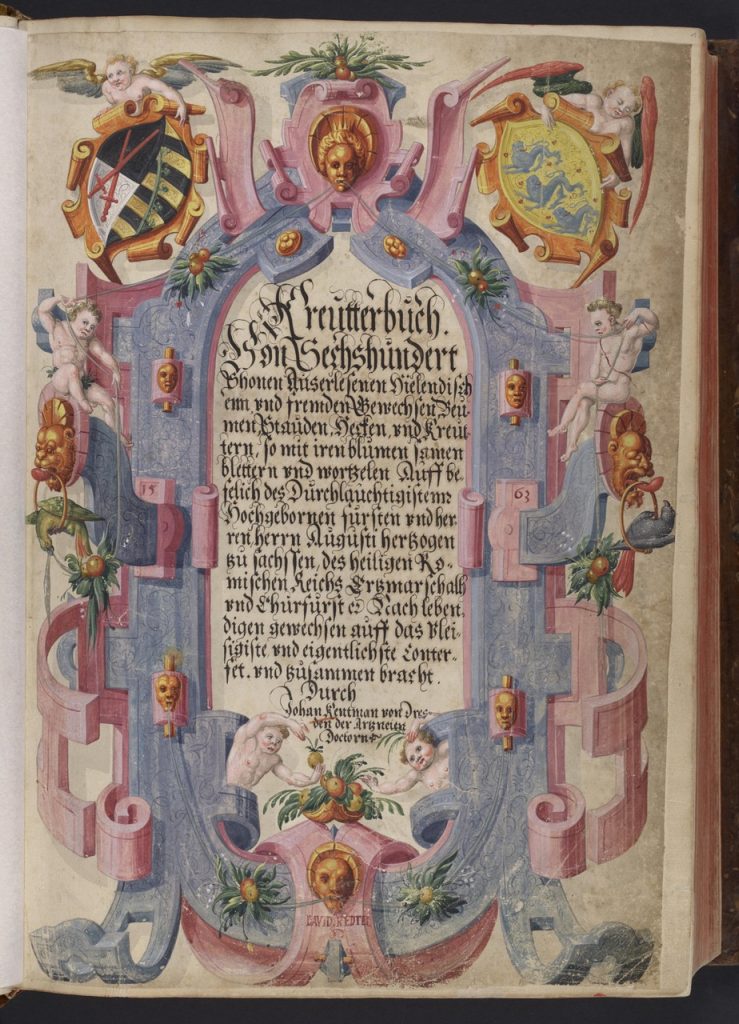 Kreutterbuch.
Von Sechshundert
Schonen Auserlesenen Hielendisch
enn vnd fremden Gewechsen, Beu
men Stauden, Hecken, vnd Kreut
tern, so mit iren blumen samen
blettern vnd wortzelen Auff be
felich des Durchlauchtigistenn
Hochgebornen fursten vnd her
ren herrn Augusti hertzogen
zu sachssen, des heiligen Ro-
mischen Reichs Ertzmarschalh
vnd Churfurst Nach leben,
digen gewechsen auff das vlei-
sigiste vnd eigentlichste Conter-
fet. vnd zusammen bracht.
Durch
Johan Kentman von Dres-
den der Artzneien
Doctorn
15 63
DAVID REDTEL